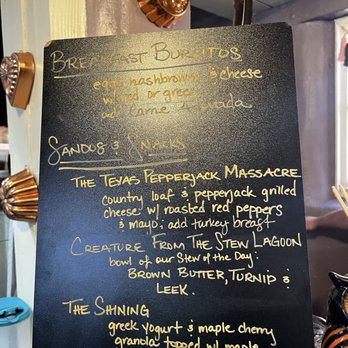 BREAKFAST BURRITOS
egg, hashbrown, & cheese
w/ red or green
add carne asada
SANDOS & SNACKS
THE TEXAS PEPPERJACK MASSACRE
country loaf & pepperjack grilled
cheese w/ roasted red peppers
& mayo; add turkey breast
CREATURE FROM THE STEW LAGOON
bowl of our Stew of the Day:
BROWN BUTTER, TURNIP &
LEEK.
THE SHINING
greek yogurt & maple cherry
granola topped w/ maple